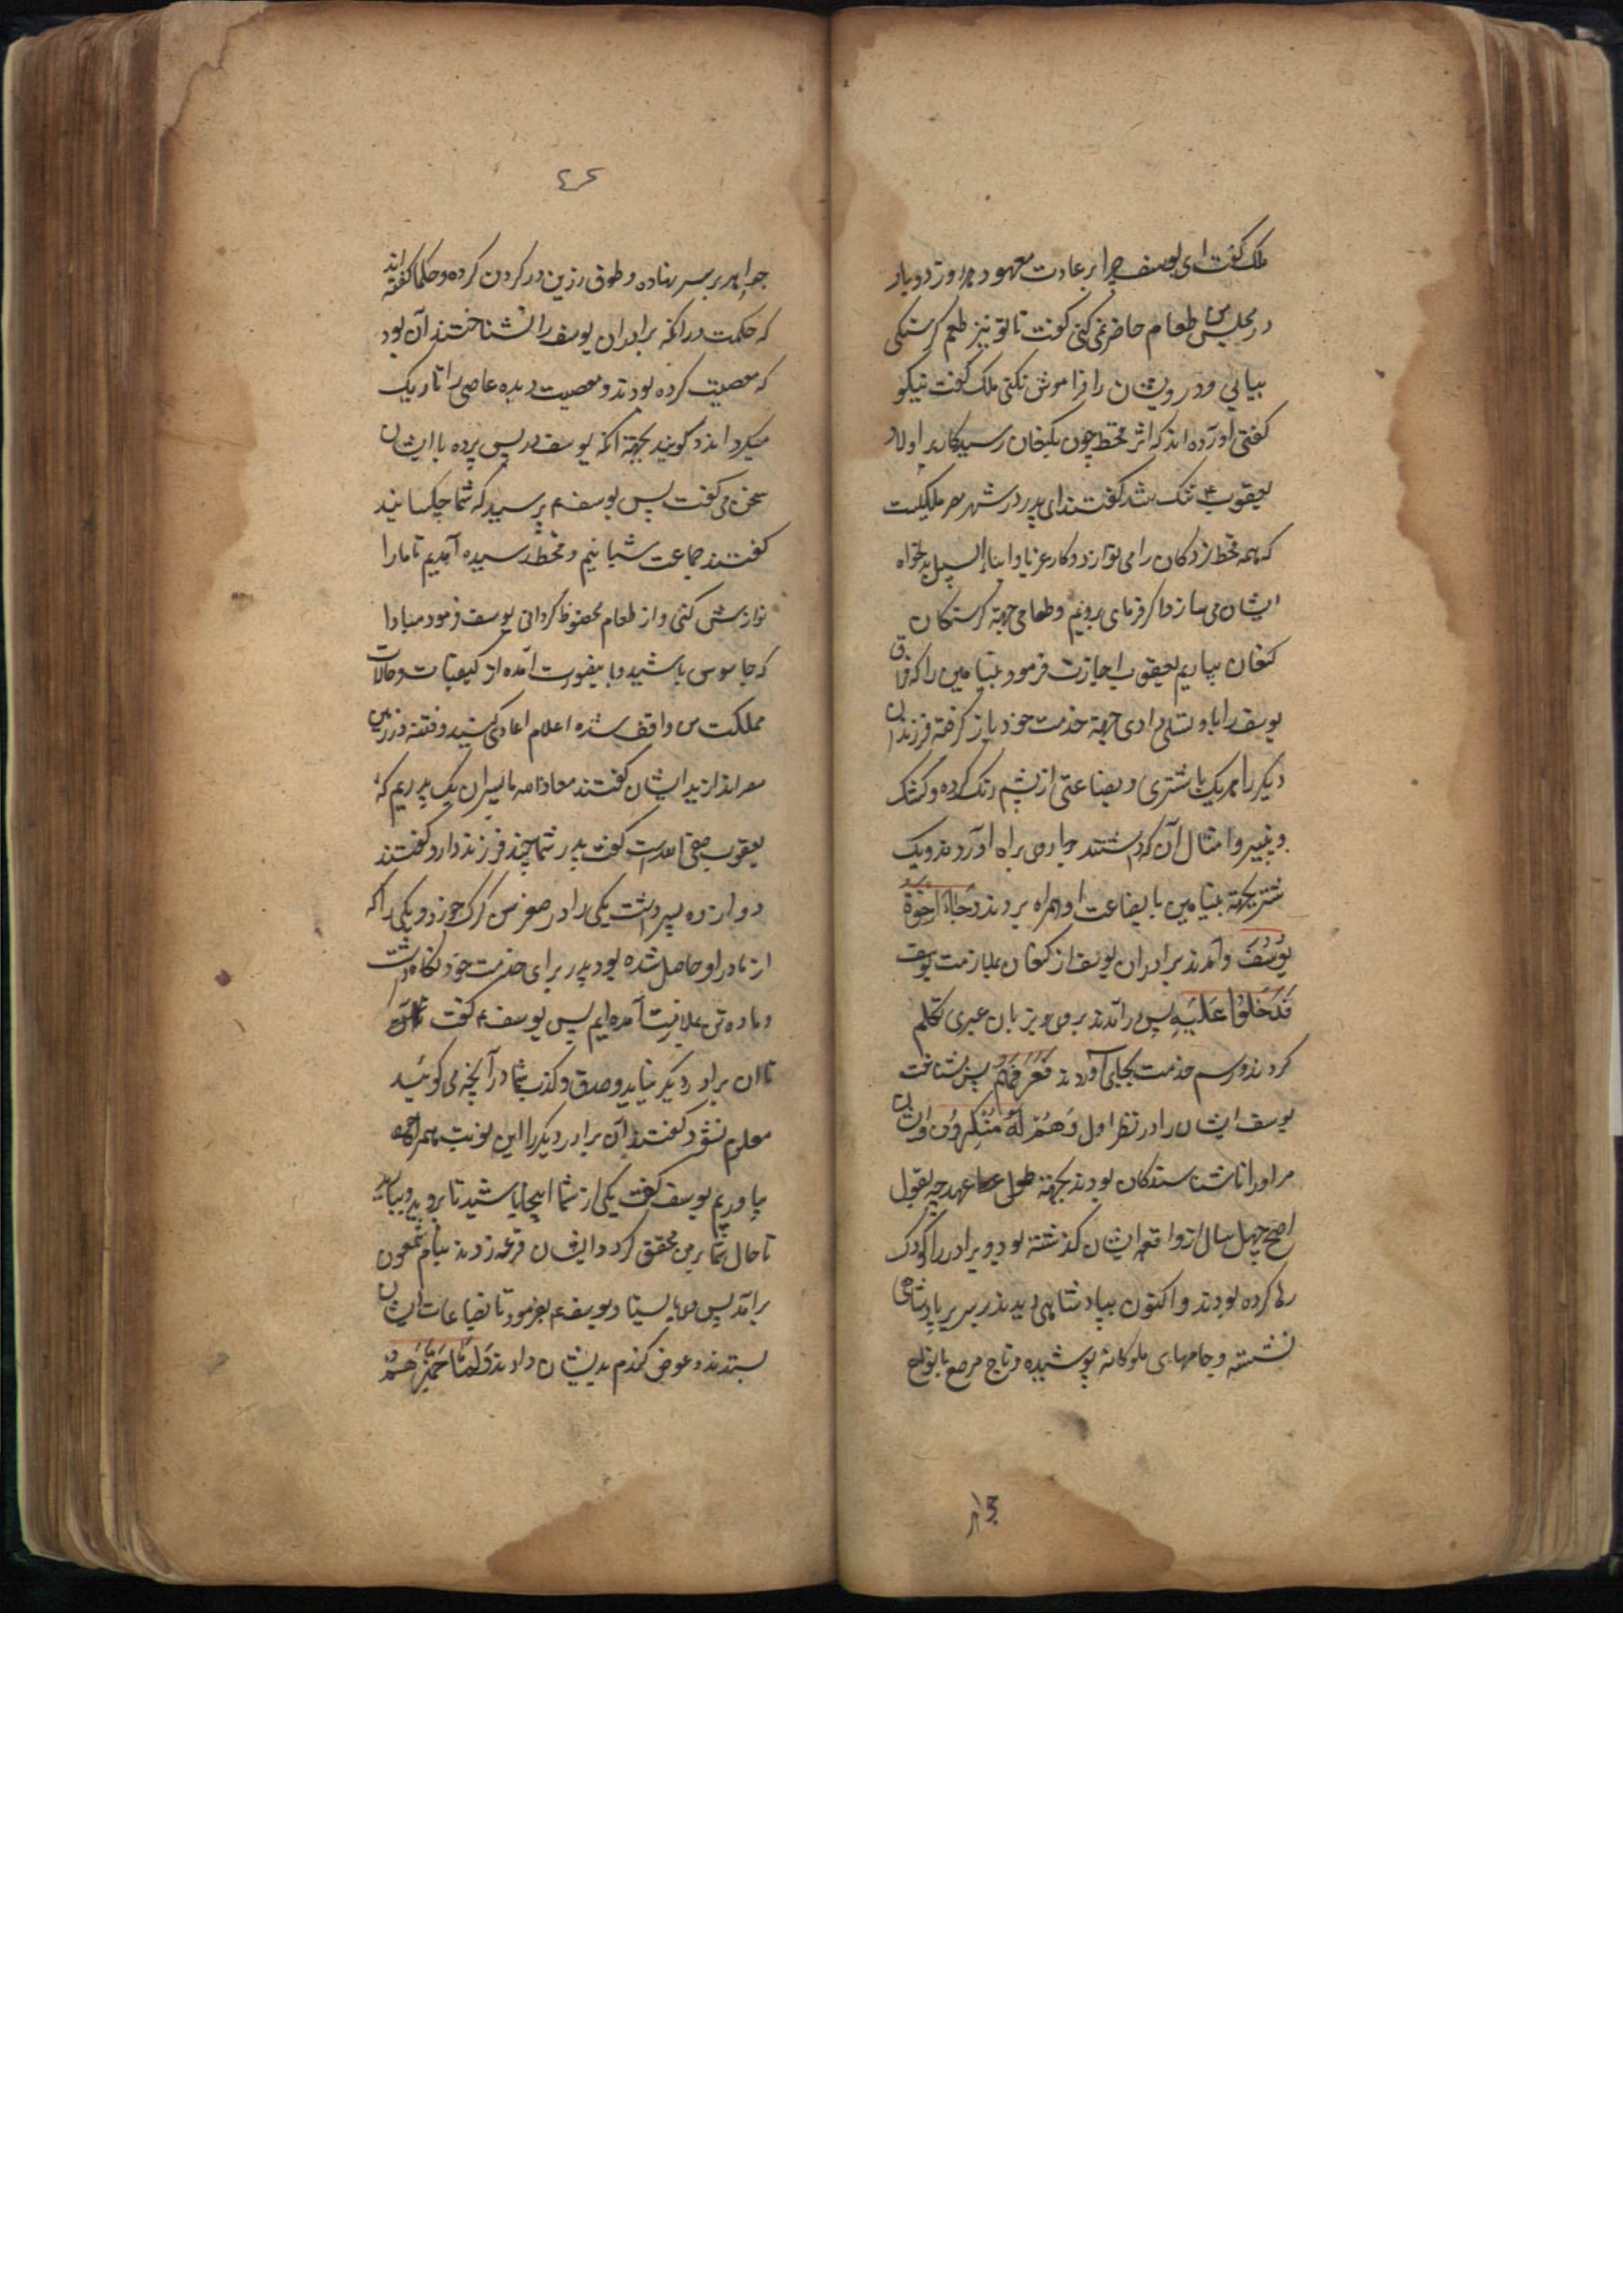 ملک گفت ای یوسف چرا بر عادت معهود هر روز دو بار
در مجلس من طعام حاضر نمی کنی گفت تا تو نیز طعم گرسنگی
بیابی و درویشان را فراموش نکنی ملک گفت نیکو
گفتی آورده اند که اثر قحط چون بکنعان رسید کار بر اولاد
یعقوب ۴ تنک شد گفتند ای پدر در شهر مصر ملکیست
که همه قحط زدکان را می نوازد و کار غربا و ابناء السبیل بدلخواه
ایشان می سازد اکر فرمای برویم و طعامی جهة کرسنکان
کنعان بیاریم یعقوب اجازت فرمود بنیامین را که فراق
یوسف را باو تسلی دادی جهة خدمت خود باز کرفته فرزندان
دیکر را هر یک با شتری و بضاعتی از پشم رنک کرده و کشک
و پنیر و امثال آن که داشتند براه آوردند و یک
شتر بجهة بنیامین با بضاعت او همراه بردند وَجَاءَ اِخْوَةُ
یُوسُفَ و آمدند برادران یوسف از کنعان بملازمت یوسف
فَدَخَلُوْا عَلَیْهِ پس درآمدند بر وی و بزبان عبری تکلم
کردند و رسم خدمت بجای آوردند فَعَرَفَهُمْ پس بشناخت
یوسف ایشان را در نظر اول وَهُمْ لَهُ مُنْکِرُوْنَ و ایشان
مر او را ناشناسندکان بودند بجهة طول عهد چه بقول
اصح چهل سال از واقعه ایشان کذشته بود و برادر را کودک
رها کرده بودند و اکنون بپادشاهی دیدند بر سریر پادشاهی
نشسته و جامهای ملوکانه پوشیده و تاج مرصع بانواع
جواهر بر سر نهاده و طوق زرین در کردن کرده و حکما کفته اند
که حکمت در انکه برادران یوسف را نشناختند آن بود
که معصیت کرده بودند و معصیت دیده عاصی را تاریک
میکرداند و کویند بجهة آنکه یوسف در پس پرده با ایشان
سخن می کفت پس یوسف ۴ پرسید که شما چه کسانید
کفتند جماعت شبانیم و قحط رسیده آمدیم تا ما را
نوازش کنی و از طعام محظوظ کردانی یوسف فرمود مبادا
که جاسوس باشید و باینصورت آمده از کیفیات و حالات
مملکت من واقف شده اعلام اعادی کنید و فتنه در زمین
مصر اندازید ایشان کفتند معاذالله ما پسران یک پدریم که
یعقوب صفی الله است کفت پدر شما چند فرزند دارد کفتند
دوازده پسر داشت یکی را در صغر سن کرک خورد و یکی را که
از مادر او حاصل شده بود پدر برای خدمت خود نکاه داشت
و ما ده تن بملازمت آمده ایم پس یوسف ۴ کفت
تا آن برادر دیکر نیاید و صدق و کذب شما در آنچه می کوئید
معلوم نشود کفتند آن برادر دیکر را این نوبت همراه
بیاوریم یوسف کفت یکی از شما اینجا باشید تا بروید و بیایید
تا حال شما بر من محقق کردد ایشان قرعه زدند بنام شمعون
برآمد پس وی بایستاد و یوسف ۴ بفرمود تا بضاعات ایشان
بستدند و عوض کندم بدیشان دادند وَلَمَّا جَهَّزَهُمْ